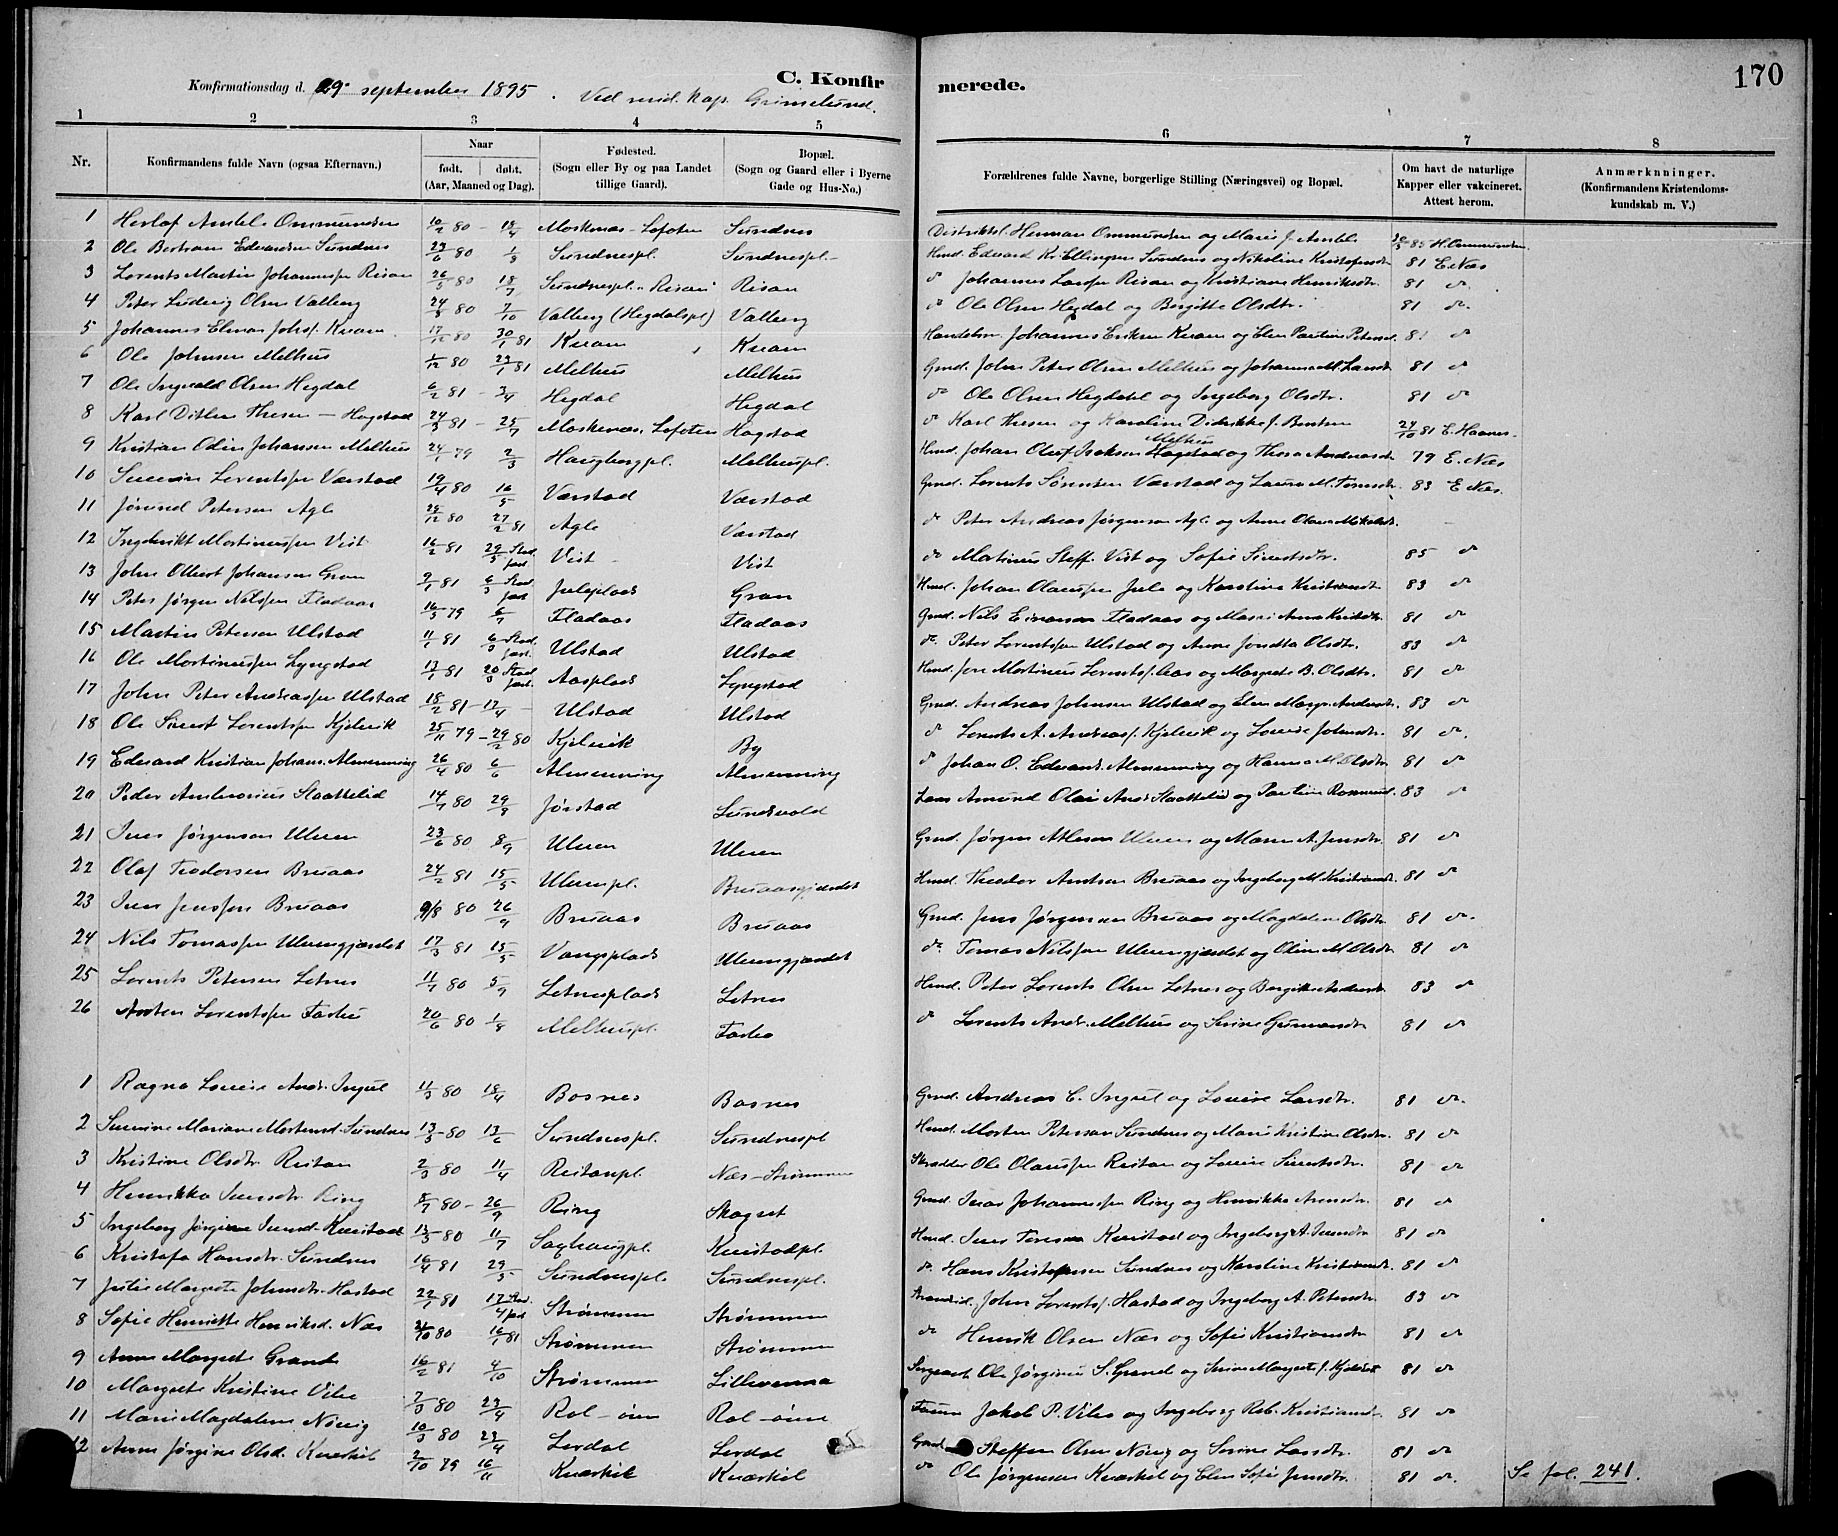 170
C. Konfirmerede.
Konfirmationsdag d. 29. september 1895. Ved resid. kap. Grimelund.
1 2 3 4 5 6 7 8
Nr. Konfirmandens fulde Navn (ogsaa Efternavn.) Naar født. døbt. (Aar, Maaned og Dag). Fødested. (Sogn eller By og paa Landet tillige Gaard). Bopæl. (Sogn og Gaard eller i Byerne Gade og Hus-No.) Forældrenes fulde Navne, borgerlige Stilling (Næringsvei) og Bopæl. Om havt de naturlige Kapper eller vakcineret. Attest herom. Anmærknninger. (Konfirmandens Kristendomskundskab m. V.)
1 Herlof Amble Ommundsen 10/2 80 - Moskenæs - Lofoten Sundnes Distriktsl. Herman Ommundsen og Marie J. Amble 85 H. Ommundsen
2 Ole Bertram Edvardsen Sundnes 29/6 80 1/8 Sundnespl. Sundnespl. Hmd. Edvard Kr. Ellingsen Sundnes og Nikoline Kristofersdtr. 81 E. Næs
3 Lorents Martin Johannessen Risan 26/5 80 18/7 Sundnespl. "Risan" Risan do Johannes Larssen Risan og Kristiane Henriksdtr. 81 do
4 Peter Ludvig Olsen Valberg 24/8 80 7/10 Valberg (Hegdalspl) Valberg do Ole Olsen Hegdal og Bergitte Olsdtr. 81 do
5 Johannes Elenar Johs. Kvam 17/12 80 30/1 81 Kvam Kvam Johannes Eriksen Kvam og Elen Pauline Petersd. 81 do
6 Ole Johnsen Melhus 1/12 80 29/1 81 Melhus Melhus Grnd. John Peter Olsen Melhus og Johanna M. Larsdtr. 81 do
7 Ole Ingvald Olsen Hegdal 6/2 81 - 3/4 Hegdal Hegdal do Ole Olsen Hegdahl og Ingeborg Olsdtr. 81 do
8 Karl Ditlev Thesen - Hogstad 24/3 81 - 25/7 Moskenæs, Lofoten Hogstad do Karl Thesen og Karoline Didrikke J. Bentsen 29/10 81 E. Haanes.
9 Kristian Odin Johansen Melhus 24/1 79 2/3 Haugbergpl. Melhuspl. Hmd. Johan Oluf Isaksen Melhus og Thea Andreasdtr. 79 E. Næs
10 Severin Lorentssen Værstad 19/4 80 16/5 Værstad Værstad Grnd. Lorents Sørensen Værstad og Laura M. Tomasdtr. 83 E. Næs.
11 Jørund Petersen Agle 29/12 80 27/2 81 Agle Værstad do Peter Andreas Jørgensen Agle og Anne Olava Mikalsdtr. -
12 Ingebrikt Martinussen Vist 16/2 81 29/5 Stadfæst Vist Vist do Martinus Steff. Vist og Sofie Sivertsdtr. 85 do
13 John Olbert Johansen Gran 9/1 81 6/3 Stadfæst Juleplads Gran Hmd. Johan Olaussen Jule og Karoline Kristiansdtr. 83 do
14 Peter Jørgen Nilssen Fladaas 16/5 79 6/7 Fladaas Fladaas Grnd. Nils Einarsen Fladaas og Masri Anna Kristdtr. 81 do
15 Martin Petersen Ulstad 11/1 81 6/3 Stadfæst. Ulstad Ulstad do. Peter Lorentssen Ulstad og Anne Jonetta Olsdtr. 83 do
16 Ole Mortinussen Lyngstad 13/1 81 20/3 Stadfæst. Aasplads Lyngstad Hmd. Jon Mortinus Lorents. Aas og Margrete B. Olsdtr. 81 do
17 John Peter Andreassen Ulstad 18/2 81 - 17/4 Ulstad Ulstad Grnd. Andreas Johnsen Ulstad og Elen Margr. Andersdtr. 83 do
18 Ole Sivert Lorentssen Kjelvik 25/11 79 - 29/2 80 Kjelvik By do Lorents A. Andreass. Kjelvik og Lovise Johnsdtr. 81 do.
19 Edvard Kristian Johans. Almenning 26/4 80 6/6 Almenning Almenning do Johan O. Edvards. Almenning og Hanna M. Olsdtr. 81 do
20 Peder Ambrosius Slaattelid 14/7 80 29/8 Jørstad Sundvold Lars Amund Olai Ands. Slaattelid og Pauline Rasmusd. 83 do
21 Iver Jørgensen Ulven 23/6 80 8/9 Ulven Ulven Grnd. Jørgen Atlesen Ulven og Maren A. Jensdtr. 81 do
22 Olaf Teodorsen Bruaas 24/2 81 15/5 Ulvenpl. Bruaasgjærdet Hmd. Theodor Arntsen Bruaas og Ingeborg M. Kristiansdtr. 81 do
23 Iver Jenssen Bruaas 9/8 80 26/9 Bruaas Bruaas Grnd. Jens Jørgensen Bruaas og Magdalena Olsdtr. 81 do.
24 Nils Tomassen Ulvengjærdet 17/3 81 15/5 Vangsplads Ulvengjærdet do. Tomas Nilssen Ulvengjærdet og Olina M. Olsdtr. 81 do
25 Lorents Petersen Letnes 11/7 80 5/9 Letnesplads Letnes Hmd. Peter Lorents Olsen Letnes og Bergitte Andersdtr. 83 do
26 Anton Lorentssen 20/6 80 1/8 Melhuspl. do Lorents Andr. Melhus og Serine Gunnarsdtr. 81 do
1 Ragna Lovise Andr. Ingul 11/3 80 18/4 Bosnes Bosnes Grnd. Andreas C. Ingul og Lovise Larsdtr. 81 do.
2 Severine Mariane Mortensd. Sundnes 13/5 80 13/6 Sundnespl. Sundnespl Hmd. Morten Petersen Sundnes og Marie Kristine Olsdtr. 81 do
3 Kristine Olsdtr. Reitan 2/3 80 11/4 Reitanpl. Næs - Strømmen Skrædder Ole Olaussen Reitan og Lovise Sivertsdtr. 81 do
4 Henrikka Iversdtr. Ring 8/7 80 - 26/9 Ring Skaget Grnd. Ivar Johannessen Ring og Henrikka Arensdtr. 81 do
5 Ingeborg Jørgine Iversd. Kvistad 13/5 80 11/7 Saghaugpl. Kvistadpl. Hmd. Iver Kvistad og Ingeborg A. Iversdtr. 81 do
6 Kristofa Hansdtr. Sundnes 16/4 81 29/5 Sundnespl. Sundnespl. do. Hans Kristofersen Sundnes og Karoline Kristiansdtr. 81 do
7 Julie Margrete Johnsdtr. Hastad 22/1 81 17/4 Stadfæst Strømmen Strømmen Strandsid. John Lorents. Hastad og Ingeborg A. Petersdtr. 83 do
8 Sofie Henriette Henriksd. Næs 21/10 80 16/1 81 Strømmen Strømmen do Henrik Olsen Næs og Sofie Kristiansdtr 81 do
9 Anna Margrete Grande 16/2 81 4/10 Strømmen Lillevenna Sergeant Ole Jørginus S. Grande og Serine Margrete J. 81 do
10 Margrete Kristine Vibe 2/3 80 23/4 Rol-øien Rol-øien Jakob P. Vibe og Ingeborg Reb. Kristiansdtr. 81 do
11 Maren Magdalena Norvig 10/3 80 23/4 Lerdal Lerdal Grnd Steffen Olsen Norvig og Serine Larsdtr. 81 do
12 Anne Jørgine Olsd. Kverkil 2/10 79 16/11 Kværkil Kværkil do Ole Jørgensen Kværkil og Elen Sofie Jensdtr. 81 do. Se fol. 241.